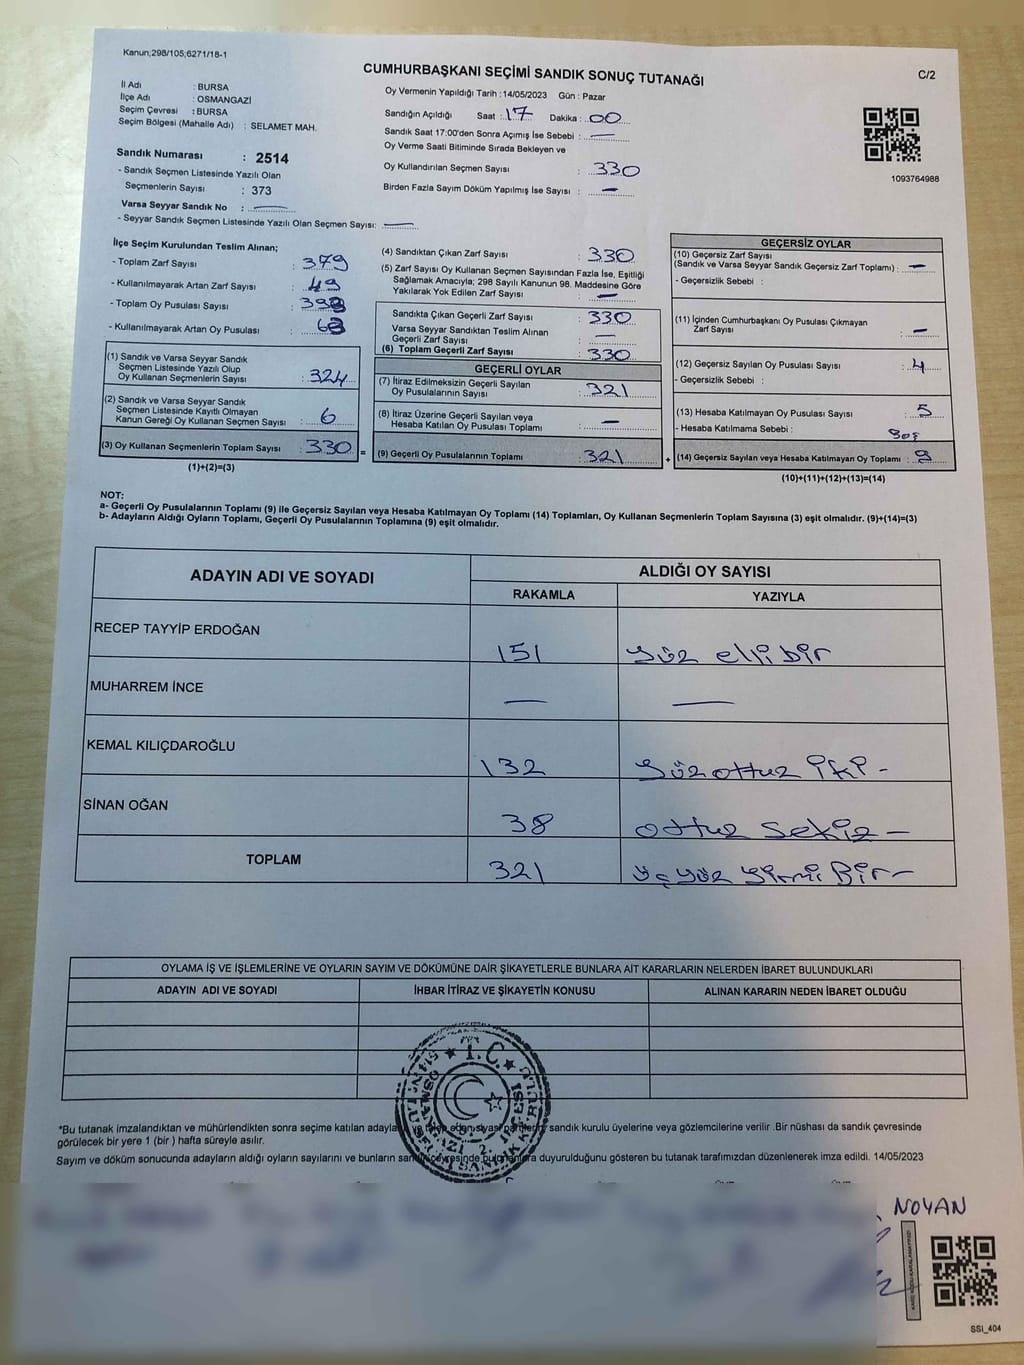 Kanun;298/105;6271/18-1
CUMHURBAŞKANI SEÇİMİ SANDIK SONUÇ TUTANAĞI
C/2
İl Adı : BURSA
İlçe Adı : OSMANGAZİ
Seçim Çevresi : BURSA
Seçim Bölgesi (Mahalle Adı) : SELAMET MAH.
Sandık Numarası : 2514
- Sandık Seçmen Listesinde Yazılı Olan
Seçmenlerin Sayısı : 373
Varsa Seyyar Sandık No : —
- Seyyar Sandık Seçmen Listesinde Yazılı Olan Seçmen Sayısı: —
Oy Vermenin Yapıldığı Tarih : 14/05/2023 Gün : Pazar
Sandığın Açıldığı Saat : 17 Dakika : 00
Sandık Saat 17:00'den Sonra Açımış İse Sebebi : —
Oy Verme Saati Bitiminde Sırada Bekleyen ve
Oy Kullandırılan Seçmen Sayısı : 330
Birden Fazla Sayım Döküm Yapılmış İse Sayısı : —
1093764988
İlçe Seçim Kurulundan Teslim Alınan;
- Toplam Zarf Sayısı : 379
- Kullanılmayarak Artan Zarf Sayısı : 49
- Toplam Oy Pusulası Sayısı :
- Kullanılmayarak Artan Oy Pusulası :
(1) Sandık ve Varsa Seyyar Sandık
Seçmen Listesinde Yazılı Olup
Oy Kullanan Seçmenlerin Sayısı : 324
(2) Sandık ve Varsa Seyyar Sandık
Seçmen Listesinde Kayıtlı Olmayan
Kanun Gereği Oy Kullanan Seçmen Sayısı : 6
(3) Oy Kullanan Seçmenlerin Toplam Sayısı : 330 =
(1)+(2)=(3)
(4) Sandıktan Çıkan Zarf Sayısı : 330
(5) Zarf Sayısı Oy Kullanan Seçmen Sayısından Fazla İse, Eşitliği
Sağlamak Amacıyla; 298 Sayılı Kanunun 98. Maddesine Göre
Yakılarak Yok Edilen Zarf Sayısı : —
Sandıkta Çıkan Geçerli Zarf Sayısı : 330
Varsa Seyyar Sandıktan Teslim Alınan
Geçerli Zarf Sayısı : —
(6) Toplam Geçerli Zarf Sayısı : 330
GEÇERLİ OYLAR
(7) İtiraz Edilmeksizin Geçerli Sayılan
Oy Pusulalarının Sayısı : 321
(8) İtiraz Üzerine Geçerli Sayılan veya
Hesaba Katılan Oy Pusulası Toplamı : —
(9) Geçerli Oy Pusulalarının Toplamı : 321 +
GEÇERSİZ OYLAR
(10) Geçersiz Zarf Sayısı
(Sandık ve Varsa Seyyar Sandık Geçersiz Zarf Toplamı) : —
- Geçersizlik Sebebi :
(11) İçinden Cumhurbaşkanı Oy Pusulası Çıkmayan
Zarf Sayısı : —
(12) Geçersiz Sayılan Oy Pusulası Sayısı : 4
- Geçersizlik Sebebi :
(13) Hesaba Katılmayan Oy Pusulası Sayısı : 5
- Hesaba Katılmama Sebebi : Boş
(14) Geçersiz Sayılan veya Hesaba Katılmayan Oy Toplamı : 9
(10)+(11)+(12)+(13)=(14)
NOT:
a- Geçerli Oy Pusulalarının Toplamı (9) ile Geçersiz Sayılan veya Hesaba Katılmayan Oy Toplamı (14) Toplamları, Oy Kullanan Seçmenlerin Toplam Sayısına (3) eşit olmalıdır. (9)+(14)=(3)
b- Adayların Aldığı Oyların Toplamı, Geçerli Oy Pusulalarının Toplamına (9) eşit olmalıdır.
ADAYIN ADI VE SOYADI
ALDIĞI OY SAYISI
RAKAMLA YAZIYLA
RECEP TAYYİP ERDOĞAN 151 Yüz elli bir
MUHARREM İNCE — —
KEMAL KILIÇDAROĞLU 132 Yüz ottuz iki -
SİNAN OĞAN 38 ottuz sekiz -
TOPLAM 321 üç yüz yirmi Bir -
OYLAMA İŞ VE İŞLEMLERİNE VE OYLARIN SAYIM VE DÖKÜMÜNE DAİR ŞİKAYETLERLE BUNLARA AİT KARARLARIN NELERDEN İBARET BULUNDUKLARI
ADAYIN ADI VE SOYADI İHBAR İTİRAZ VE ŞİKAYETİN KONUSU ALINAN KARARIN NEDEN İBARET OLDUĞU
T.C.
*Bu tutanak imzalandıktan ve mühürlendikten sonra seçime katılan adaylara ve talep eden siyasi partilerin sandık kurulu üyelerine veya gözlemcilerine verilir .Bir nüshası da sandık çevresinde
görülecek bir yere 1 (bir ) hafta süreyle asılır.
Sayım ve döküm sonucunda adayların aldığı oyların sayılarını ve bunların sandık çevresinde bulunanlara duyurulduğunu gösteren bu tutanak tarafımızdan düzenlenerek imza edildi. 14/05/2023
NOYAN
SSI_404